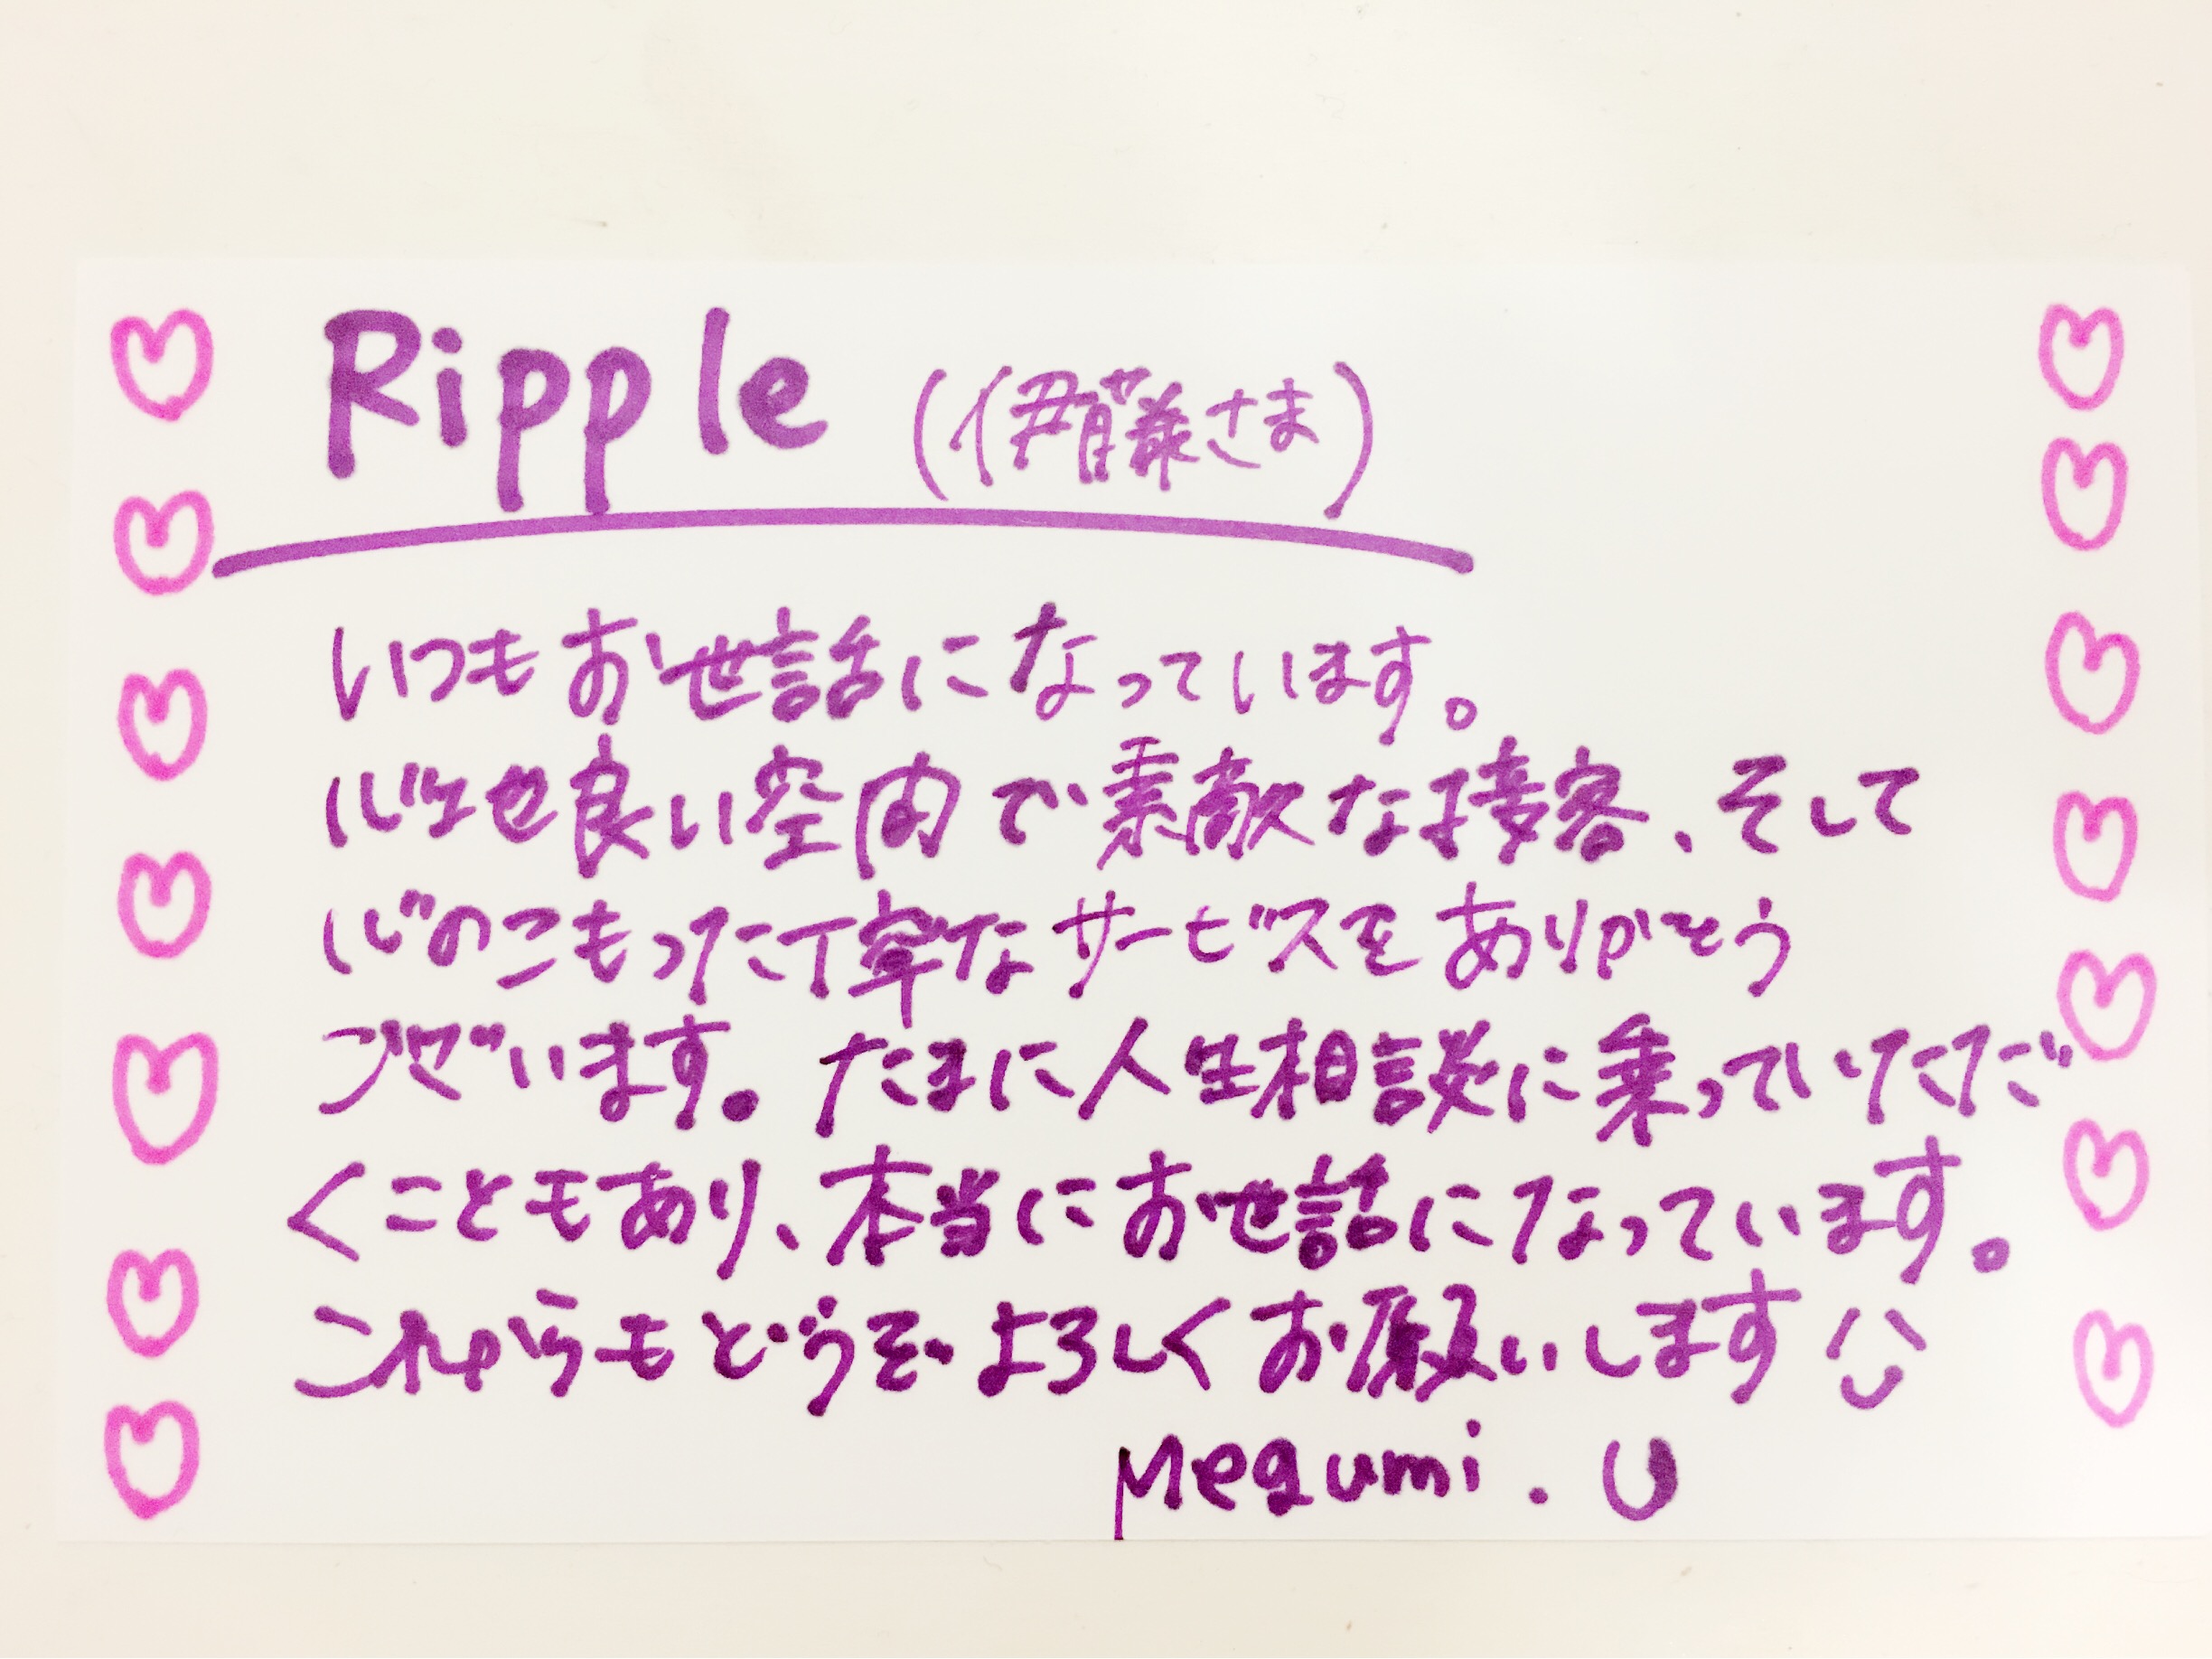 Ripple (伊藤さま)
いつもお世話になっています。
心地良い空間で素敵な接客、そして
心のこもった丁寧なサービスをありがとう
ございます。たまに人生相談に乗っていただ
くこともあり、本当にお世話になっています。
これからもどうぞよろしくお願いします
Megumi. U